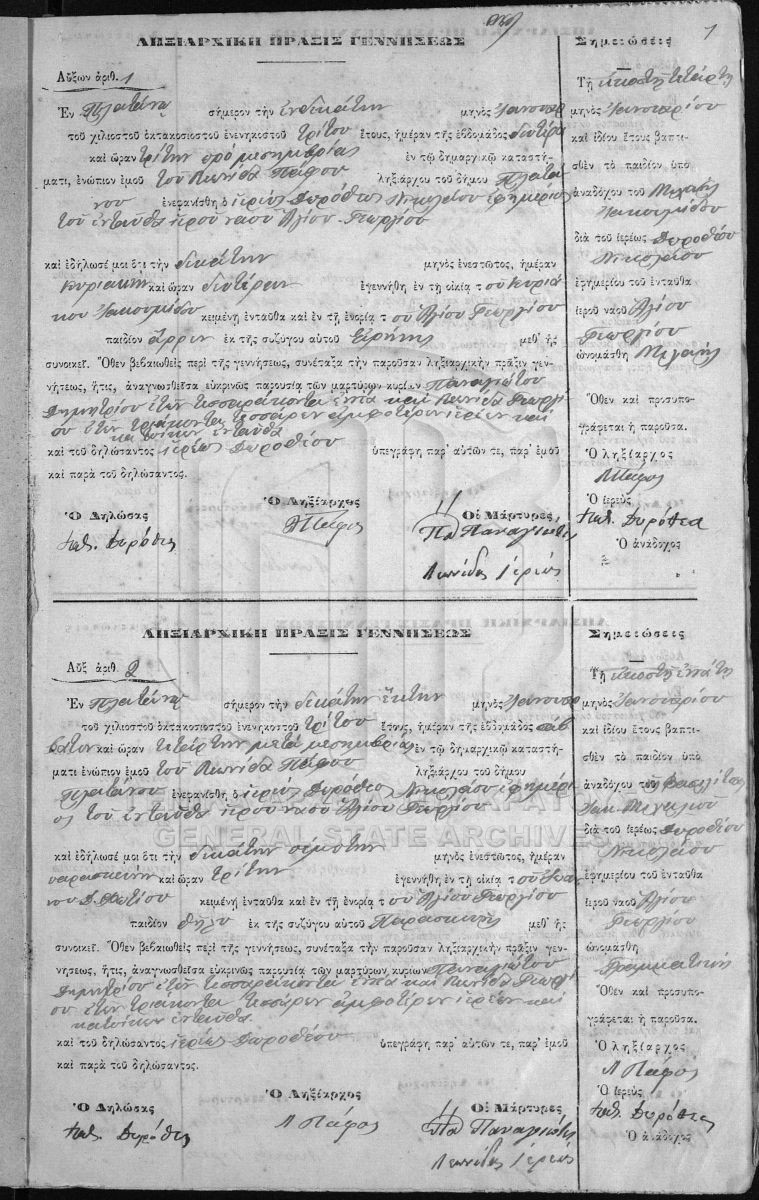 1
ΛΗΞΙΑΡΧΙΚΗ ΠΡΑΞΙΣ ΓΕΝΝΗΣΕΩΣ
Αὔξων ἀριθ. 1
Ἐν Πλατάνῳ σήμερον τὴν ἑνδεκάτην μηνὸς Ἰανουαρ
τοῦ χιλιοστοῦ ὀκτακοσιοστοῦ ἐνενηκοστοῦ τρίτου ἔτους, ἡμέραν τῆς ἑβδομάδος δευτέρα
καὶ ὥραν τρίτην πρὸ μεσημβρίας ἐν τῷ δημαρχικῷ καταστή-
ματι, ἐνώπιον ἐμοῦ τοῦ Λεωνίδα Πάφου ληξιάρχου τοῦ δήμου Πλατά
νου ἐνεφανίσθη ὁ ἱερεὺς Δωρόθεος Νικολάου ἐφημέριος
τοῦ ἐνταῦθα ἱεροῦ ναοῦ Ἁγίου Γεωργίου
καὶ ἐδήλωσέ μοι ὅτι τὴν δεκάτην μηνὸς ἐνεστῶτος, ἡμέραν
κυριακὴν καὶ ὥραν δευτέραν ἐγεννήθη ἐν τῇ οἰκίᾳ τοῦ Κυριά
κου Ἰακουμίδου κειμένῃ ἐνταῦθα καὶ ἐν τῇ ἐνορίᾳ τοῦ Ἁγίου Γεωργίου
παιδίον ἄρρεν ἐκ τῆς συζύγου αὐτοῦ Εἰρήνης μεθ' ἧς
συνοικεῖ. Ὅθεν βεβαιωθεὶς περὶ τῆς γεννήσεως, συνέταξα τὴν παροῦσαν ληξιαρχικὴν πρᾶξιν γεν-
νήσεως, ἥτις, ἀναγνωσθεῖσα εὐκρινῶς παρουσίᾳ τῶν μαρτύρων κυρίων Παναγιώτου
Δημητρίου ἐτῶν τεσσαράκοντα ἑπτὰ καὶ Λεωνίδα Γεωργί
ου ἐτῶν τριάκοντα τεσσάρων ἀμφοτέρων ἱερέων καὶ
κατοίκων ἐνταῦθα
καὶ τοῦ δηλώσαντος ἱερέως Δωροθέου ὑπεγράφη παρ' αὐτῶν τε, παρ' ἐμοῦ
καὶ παρὰ τοῦ δηλώσαντος.
Ὁ Δηλώσας Ὁ Ληξίαρχος Οἱ Μάρτυρες
Πάφος Παναγιώτης
Λεωνίδας Ἱερεύς
Σημειώσεις
Τῇ εἰκοστῇ τετάρτῃ
μηνὸς Ἰανουαρίου
καὶ ἰδίου ἔτους βαπτι-
σθὲν τὸ παιδίον ὑπὸ
ἀναδόχου τοῦ Μιχαὴλ
Ἰακουμίδου
διὰ τοῦ ἱερέως Δωροθέου
Νικολάου
ἐφημερίου τοῦ ἐνταῦθα
ἱεροῦ ναοῦ Ἁγίου
Γεωργίου
ὠνομάσθη Μιχαὴλ
Ὅθεν καὶ προσυπο-
γράφεται ἡ παροῦσα.
Ὁ ληξίαρχος
Λ Πάφος
Ὁ ἱερεὺς
Ὁ ἀνάδοχος
ΛΗΞΙΑΡΧΙΚΗ ΠΡΑΞΙΣ ΓΕΝΝΗΣΕΩΣ
Αὔξ ἀριθ. 2
Ἐν Πλατάνῳ σήμερον τὴν δεκάτην ἕκτην μηνὸς Ἰανουαρ
τοῦ χιλιοστοῦ ὀκτακοσιοστοῦ ἐνενηκοστοῦ τρίτου ἔτους, ἡμέραν τῆς ἑβδομάδος σάβ
βατον καὶ ὥραν τετάρτην μετὰ μεσημβρίαν ἐν τῷ δημαρχικῷ καταστή-
ματι ἐνώπιον ἐμοῦ τοῦ Λεωνίδα Πάφου ληξιάρχου τοῦ δήμου
Πλατάνου ἐνεφανίσθη ὁ ἱερεὺς Δωρόθεος Νικολάου ἐφημέρι
ος τοῦ ἐνταῦθα ἱεροῦ ναοῦ Ἁγίου Γεωργίου
GENERAL STATE ARCHIVES
καὶ ἐδήλωσέ μοι ὅτι τὴν δεκάτην πέμπτην μηνὸς ἐνεστῶτος, ἡμέραν
παρασκευὴν καὶ ὥραν τρίτην ἐγεννήθη ἐν τῇ οἰκίᾳ τοῦ Ἰωάν
νου Δ. Φωτίου κειμένῃ ἐνταῦθα καὶ ἐν τῇ ἐνορίᾳ τοῦ Ἁγίου Γεωργίου
παιδίον θῆλυ ἐκ τῆς συζύγου αὐτοῦ Παρασκευῆς μεθ' ἧς
συνοικεῖ. Ὅθεν βεβαιωθεὶς περὶ τῆς γεννήσεως, συνέταξα τὴν παροῦσαν ληξιαρχικὴν πρᾶξιν γεν-
νήσεως, ἥτις, ἀναγνωσθεῖσα εὐκρινῶς παρουσίᾳ τῶν μαρτύρων κυρίων Παναγιώτου
Δημητρίου ἐτῶν τεσσαράκοντα ἑπτὰ καὶ Λεωνίδα Γεωργί
ου ἐτῶν τριάκοντα τεσσάρων ἀμφοτέρων ἱερέων καὶ
κατοίκων ἐνταῦθα
καὶ τοῦ δηλώσαντος ἱερέως Δωροθέου ὑπεγράφη παρ' αὐτῶν τε, παρ' ἐμοῦ
καὶ παρὰ τοῦ δηλώσαντος.
Ὁ Δηλώσας Ὁ Ληξίαρχος Οἱ Μάρτυρες
Λ Πάφος Παναγιώτης
Λεωνίδας Ἱερεύς
Σημειώσεις
Τῇ εἰκοστῇ ἑπτάτῃ
μηνὸς Ἰανουαρίου
καὶ ἰδίου ἔτους βαπτι-
σθὲν τὸ παιδίον ὑπὸ
ἀναδόχου τοῦ
διὰ τοῦ ἱερέως Δωροθέου
Νικολάου
ἐφημερίου τοῦ ἐνταῦθα
ἱεροῦ ναοῦ Ἁγίου
Γεωργίου
ὠνομάσθη
Γραμματικὴ
Ὅθεν καὶ προσυπο-
γράφεται ἡ παροῦσα.
Ὁ ληξίαρχος
Λ Πάφος
Ὁ ἱερεὺς
Ὁ ἀνάδοχος